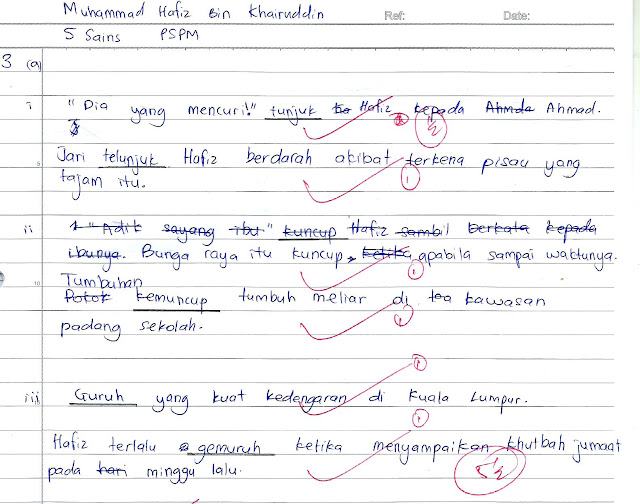 Muhammad Hafiz Bin Khairuddin Ref: Date:
5 Sains PSPM
3 (a)
i "Dia yang mencuri!" tunjuk Hafiz kepada Ahmad.
½
Jari telunjuk Hafiz berdarah akibat terkena pisau yang
1
tajam itu.
ii "Adik sayang ibu" kuncup Hafiz sambil berkata kepada
ibunya. Bunga raya itu kuncup ketika apabila sampai waktunya.
1
10 Tumbuhan
Pokok kemuncup tumbuh meliar di kawasan
1
padang sekolah.
1
iii Guruh yang kuat kedengaran di Kuala Lumpur.
1
Hafiz terlalu gemuruh ketika menyampaikan khutbah jumaat
pada hari minggu lalu.
5½